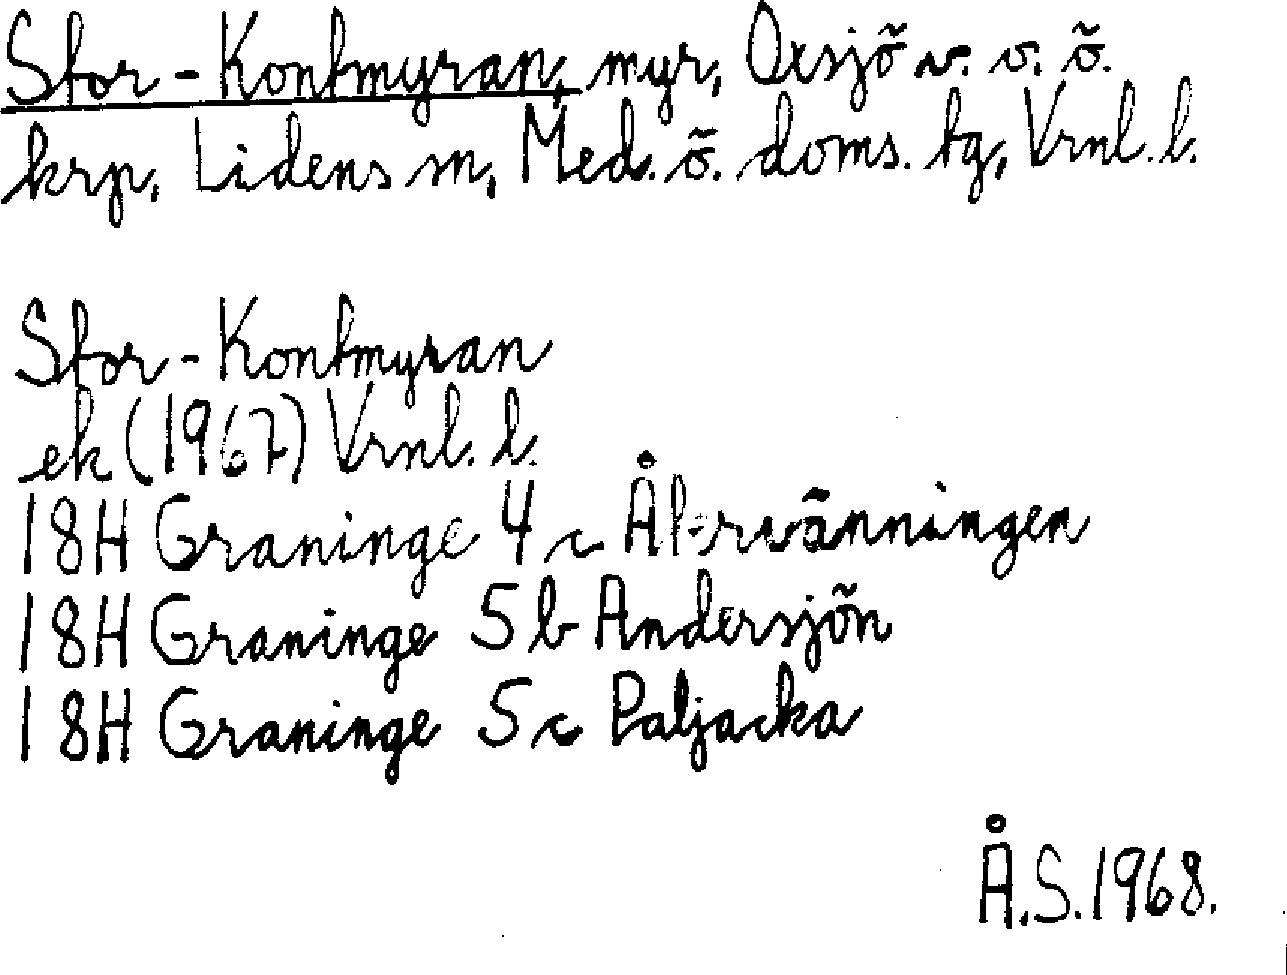 Stor-Kontmyran, myr, Oxsjö v. o. ö.
krp, Lidens sn, Med. ö. doms. tg, Vrnl. l.
Stor-Kontmyran
ek (1967) Vrnl. l.
18H Graninge 4 c Återvänningen
18H Graninge 5 b Andersjön
18H Graninge 5 c Paljacka
Å.S. 1968.